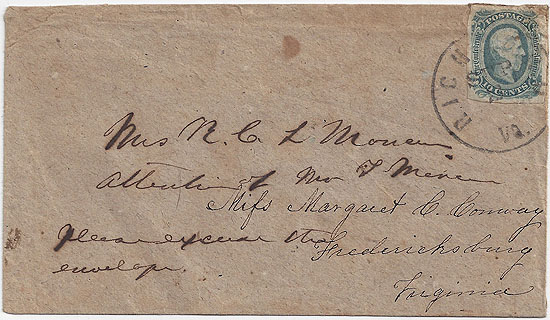 POSTAGE
10 CENTS
RICH
Va.
Mrs R. C. L Moncu
Attention of Mr
Miſs Margaret C. Conway
Please excuse this
Fredericksburg
envelope.
Virginia